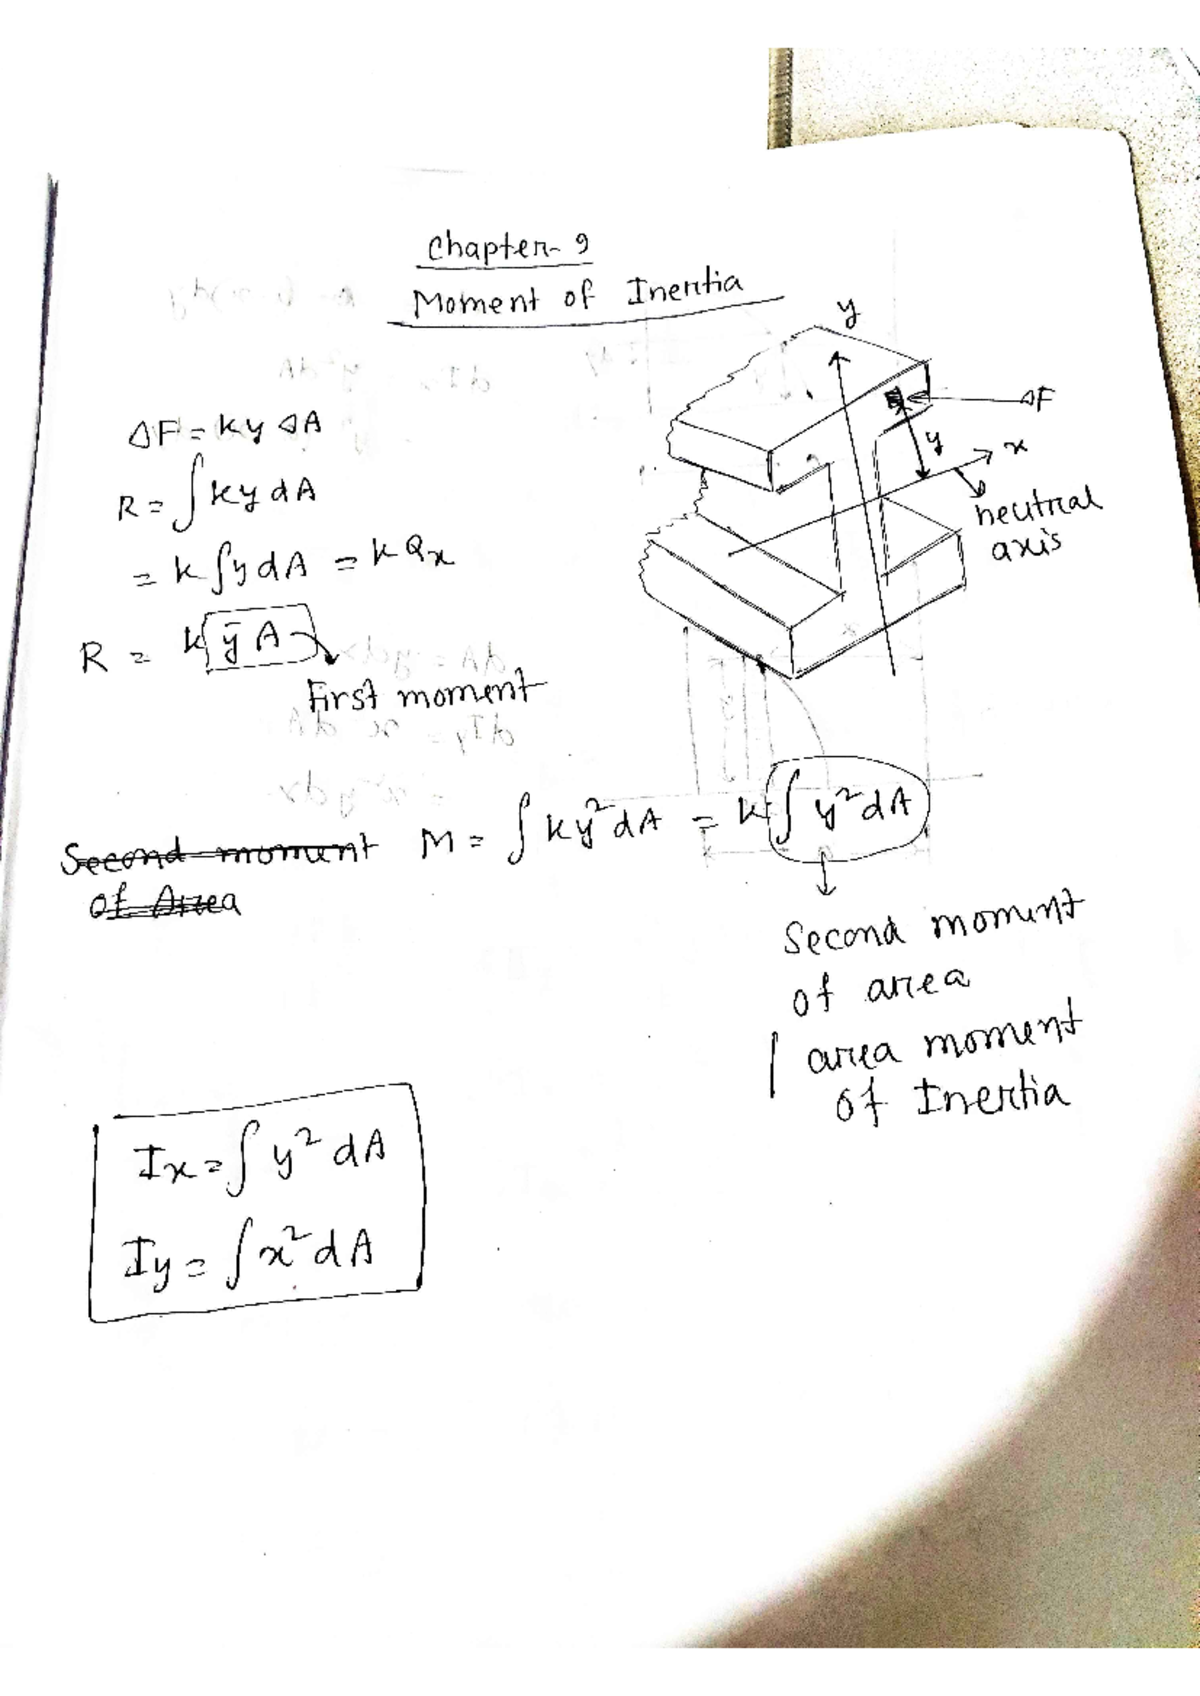 Chapter-9
Moment of Inertia
ΔF = ky ΔA
R = ∫ ky dA
= k ∫ y dA = k Qx
R = k ȳ A
First moment
y
ΔF
y
x
neutral
axis
Second moment
of Area
M = ∫ ky² dA = k ∫ y² dA
Second moment
of area
| area moment
of Inertia
Ix = ∫ y² dA
Iy = ∫ x² dA